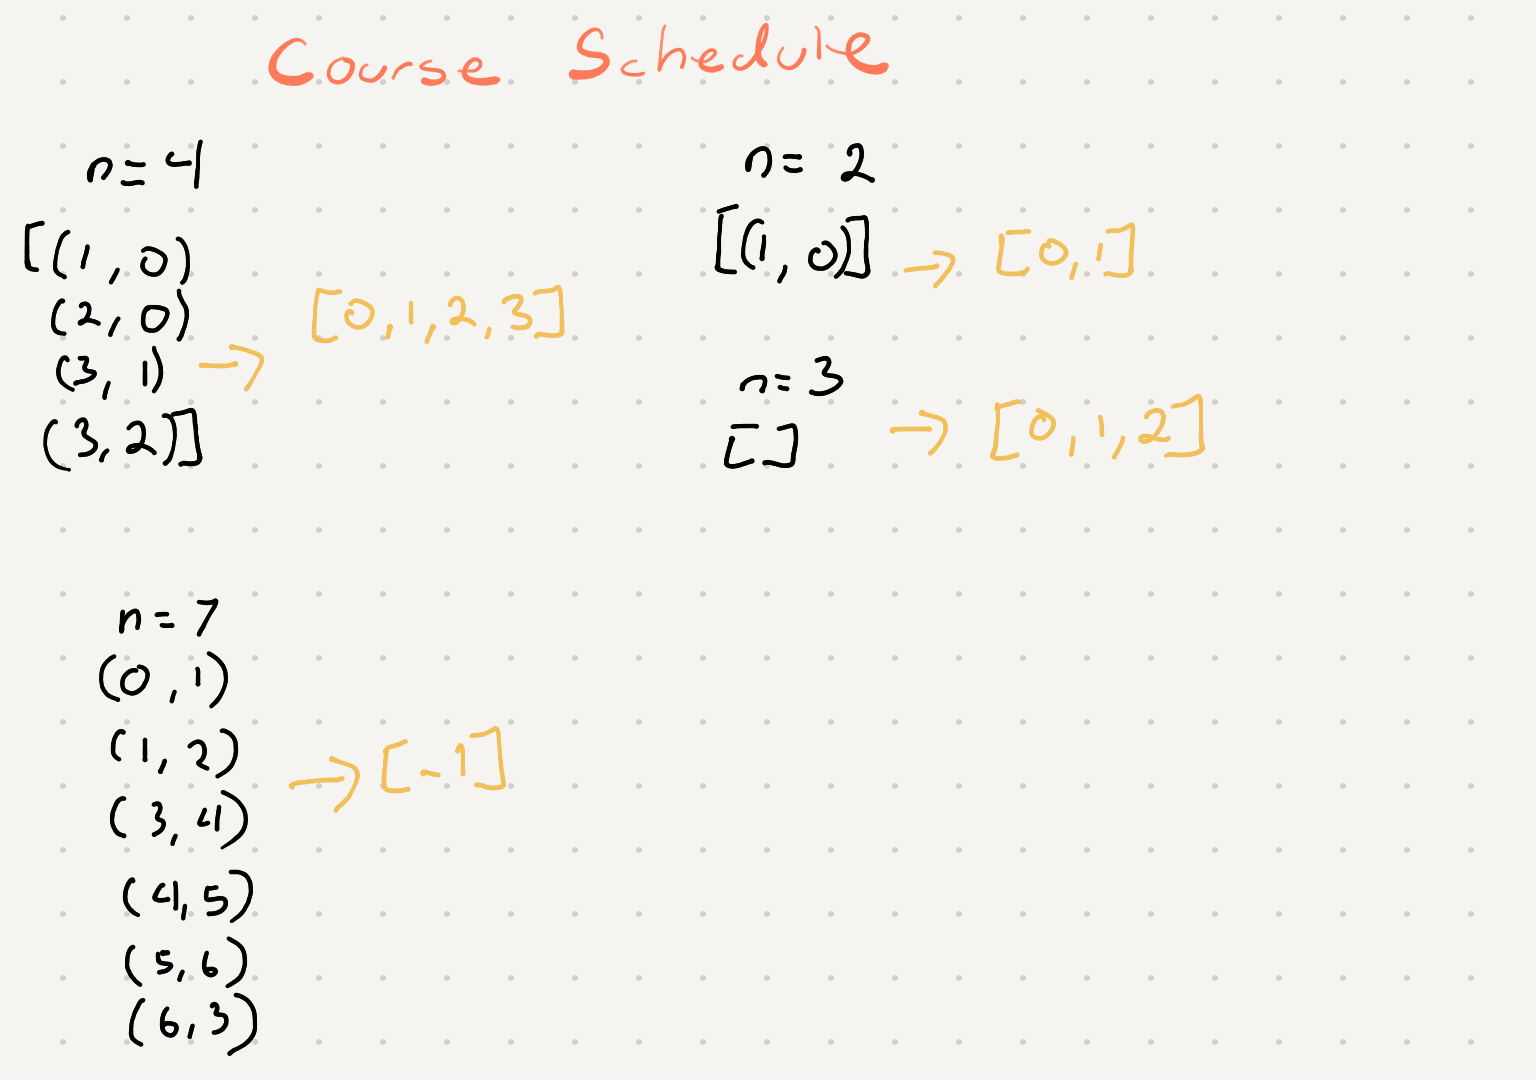 Course Schedule
n = 4
[(1, 0)
(2, 0)
(3, 1) → [0, 1, 2, 3]
(3, 2)]
n = 2
[(1, 0)] → [0, 1]
n = 3
[] → [0, 1, 2]
n = 7
(0, 1)
(1, 2)
→ [-1]
(3, 4)
(4, 5)
(5, 6)
(6, 3)